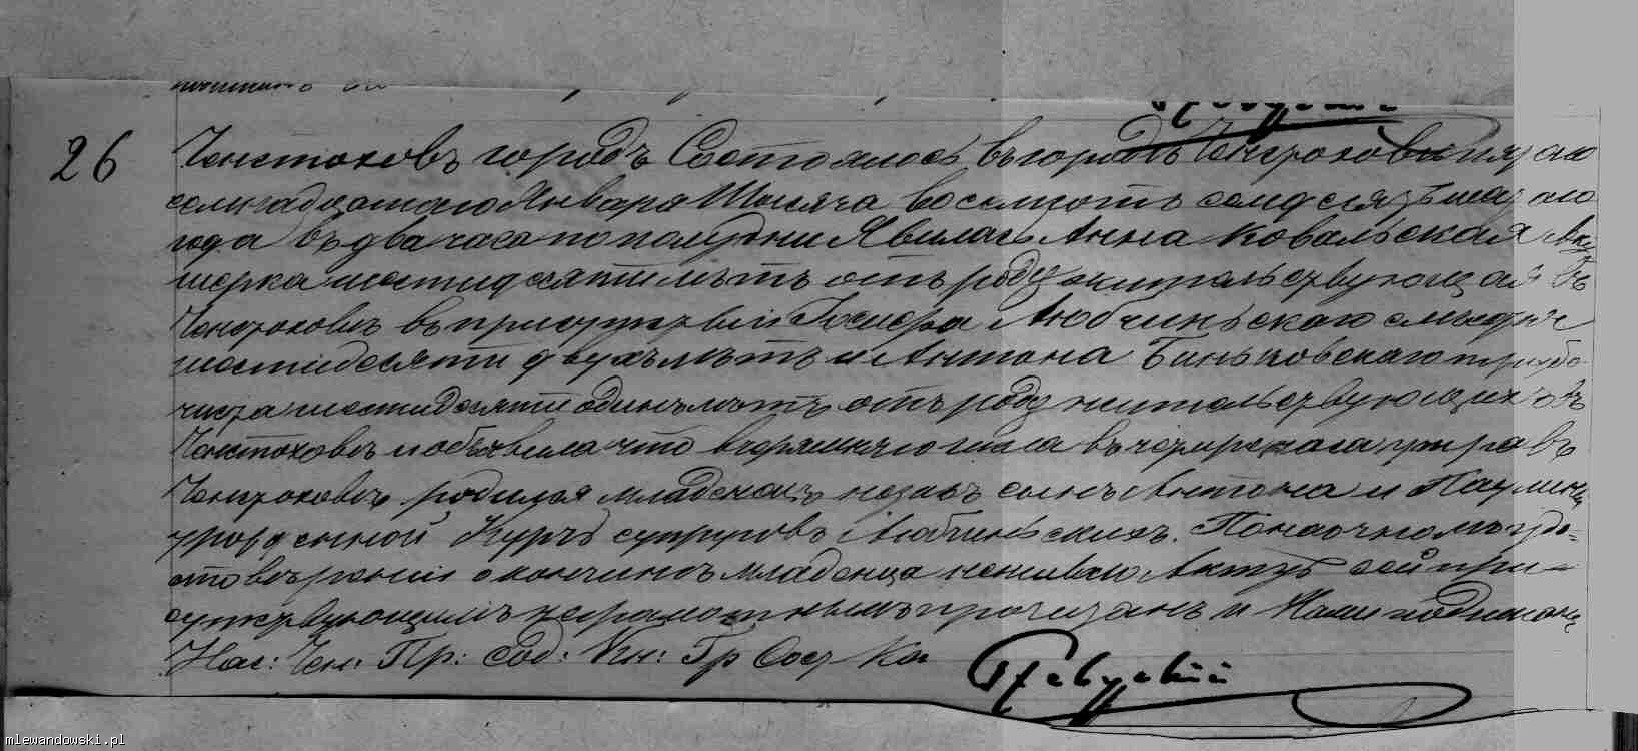 26
Ченстоховъ городъ Состоялось въ городѣ Ченстоховѣ пятаго
семнадцатаго Января Тысяча восемьсотъ семдесятъ
года въ два часа по полудни Явилась Анна Ковальская Аку
шерка шестидесяти лѣтъ отъ роду жительствующая въ
Ченстоховѣ въ присутствіи Іосифа Любчинскаго
шестидесяти двухъ лѣтъ и Антона Биньковскаго трубо
чиста шестидесяти одинъ лѣтъ отъ роду жительствующихъ въ
Ченстоховѣ и объявила что вчерашняго числа въ четыре часа утра въ
Ченстоховѣ родился младенецъ полъ сынъ Антона и Паулины
урожденной Курчъ супруговъ Любчинскихъ. По наочному удо=
стовѣреніи о кончинѣ младенца неживаго Актъ сей при=
сутствующимъ неграмотнымъ прочитанъ и Нами подписанъ
Нас: Чен: Пр: Сод: Кн: Гр Сос
mlewandowski.pl